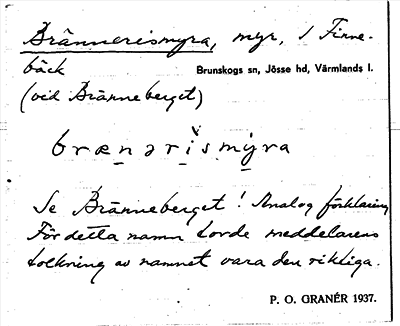 Brännerismyra, myr, i Finne-
bäck Brunskogs sn, Jösse hd, Värmlands l.
(vid Bränneberget)
brænərismýra
Se Bränneberget! Analog förklaring
För detta namn torde meddelarens
tolkning av namnet vara den riktiga.
P. O. GRANÉR 1937.